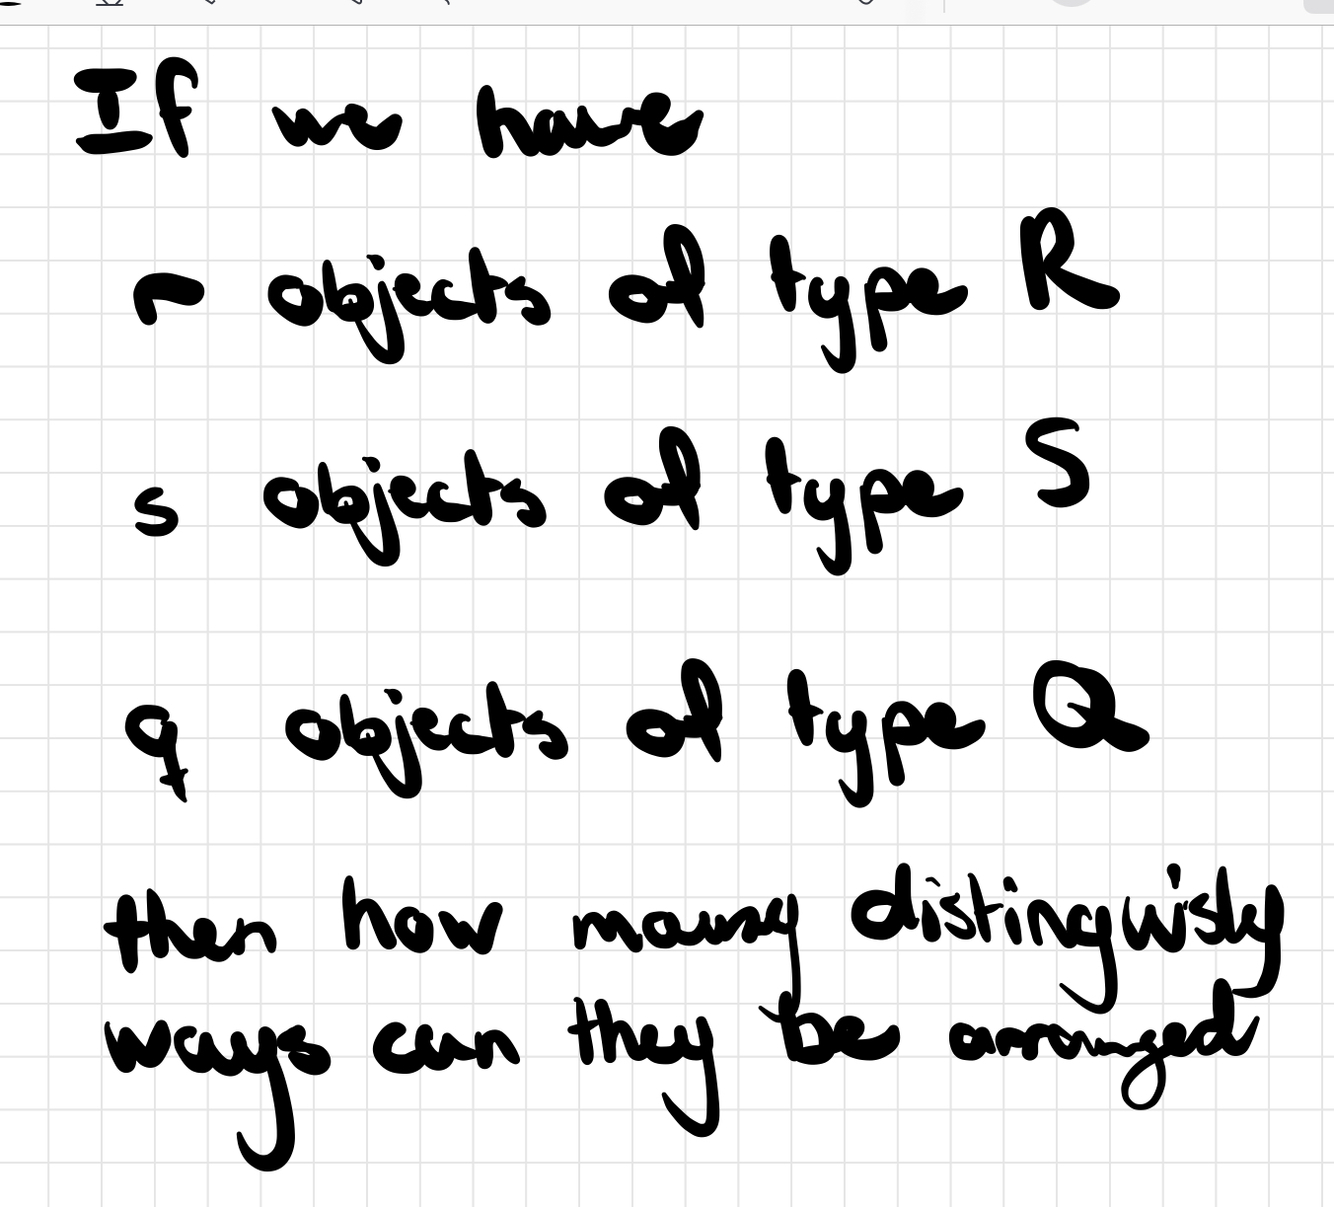 If we have
r objects of type R
s objects of type S
q objects of type Q
then how many distinguisly
ways can they be arranged